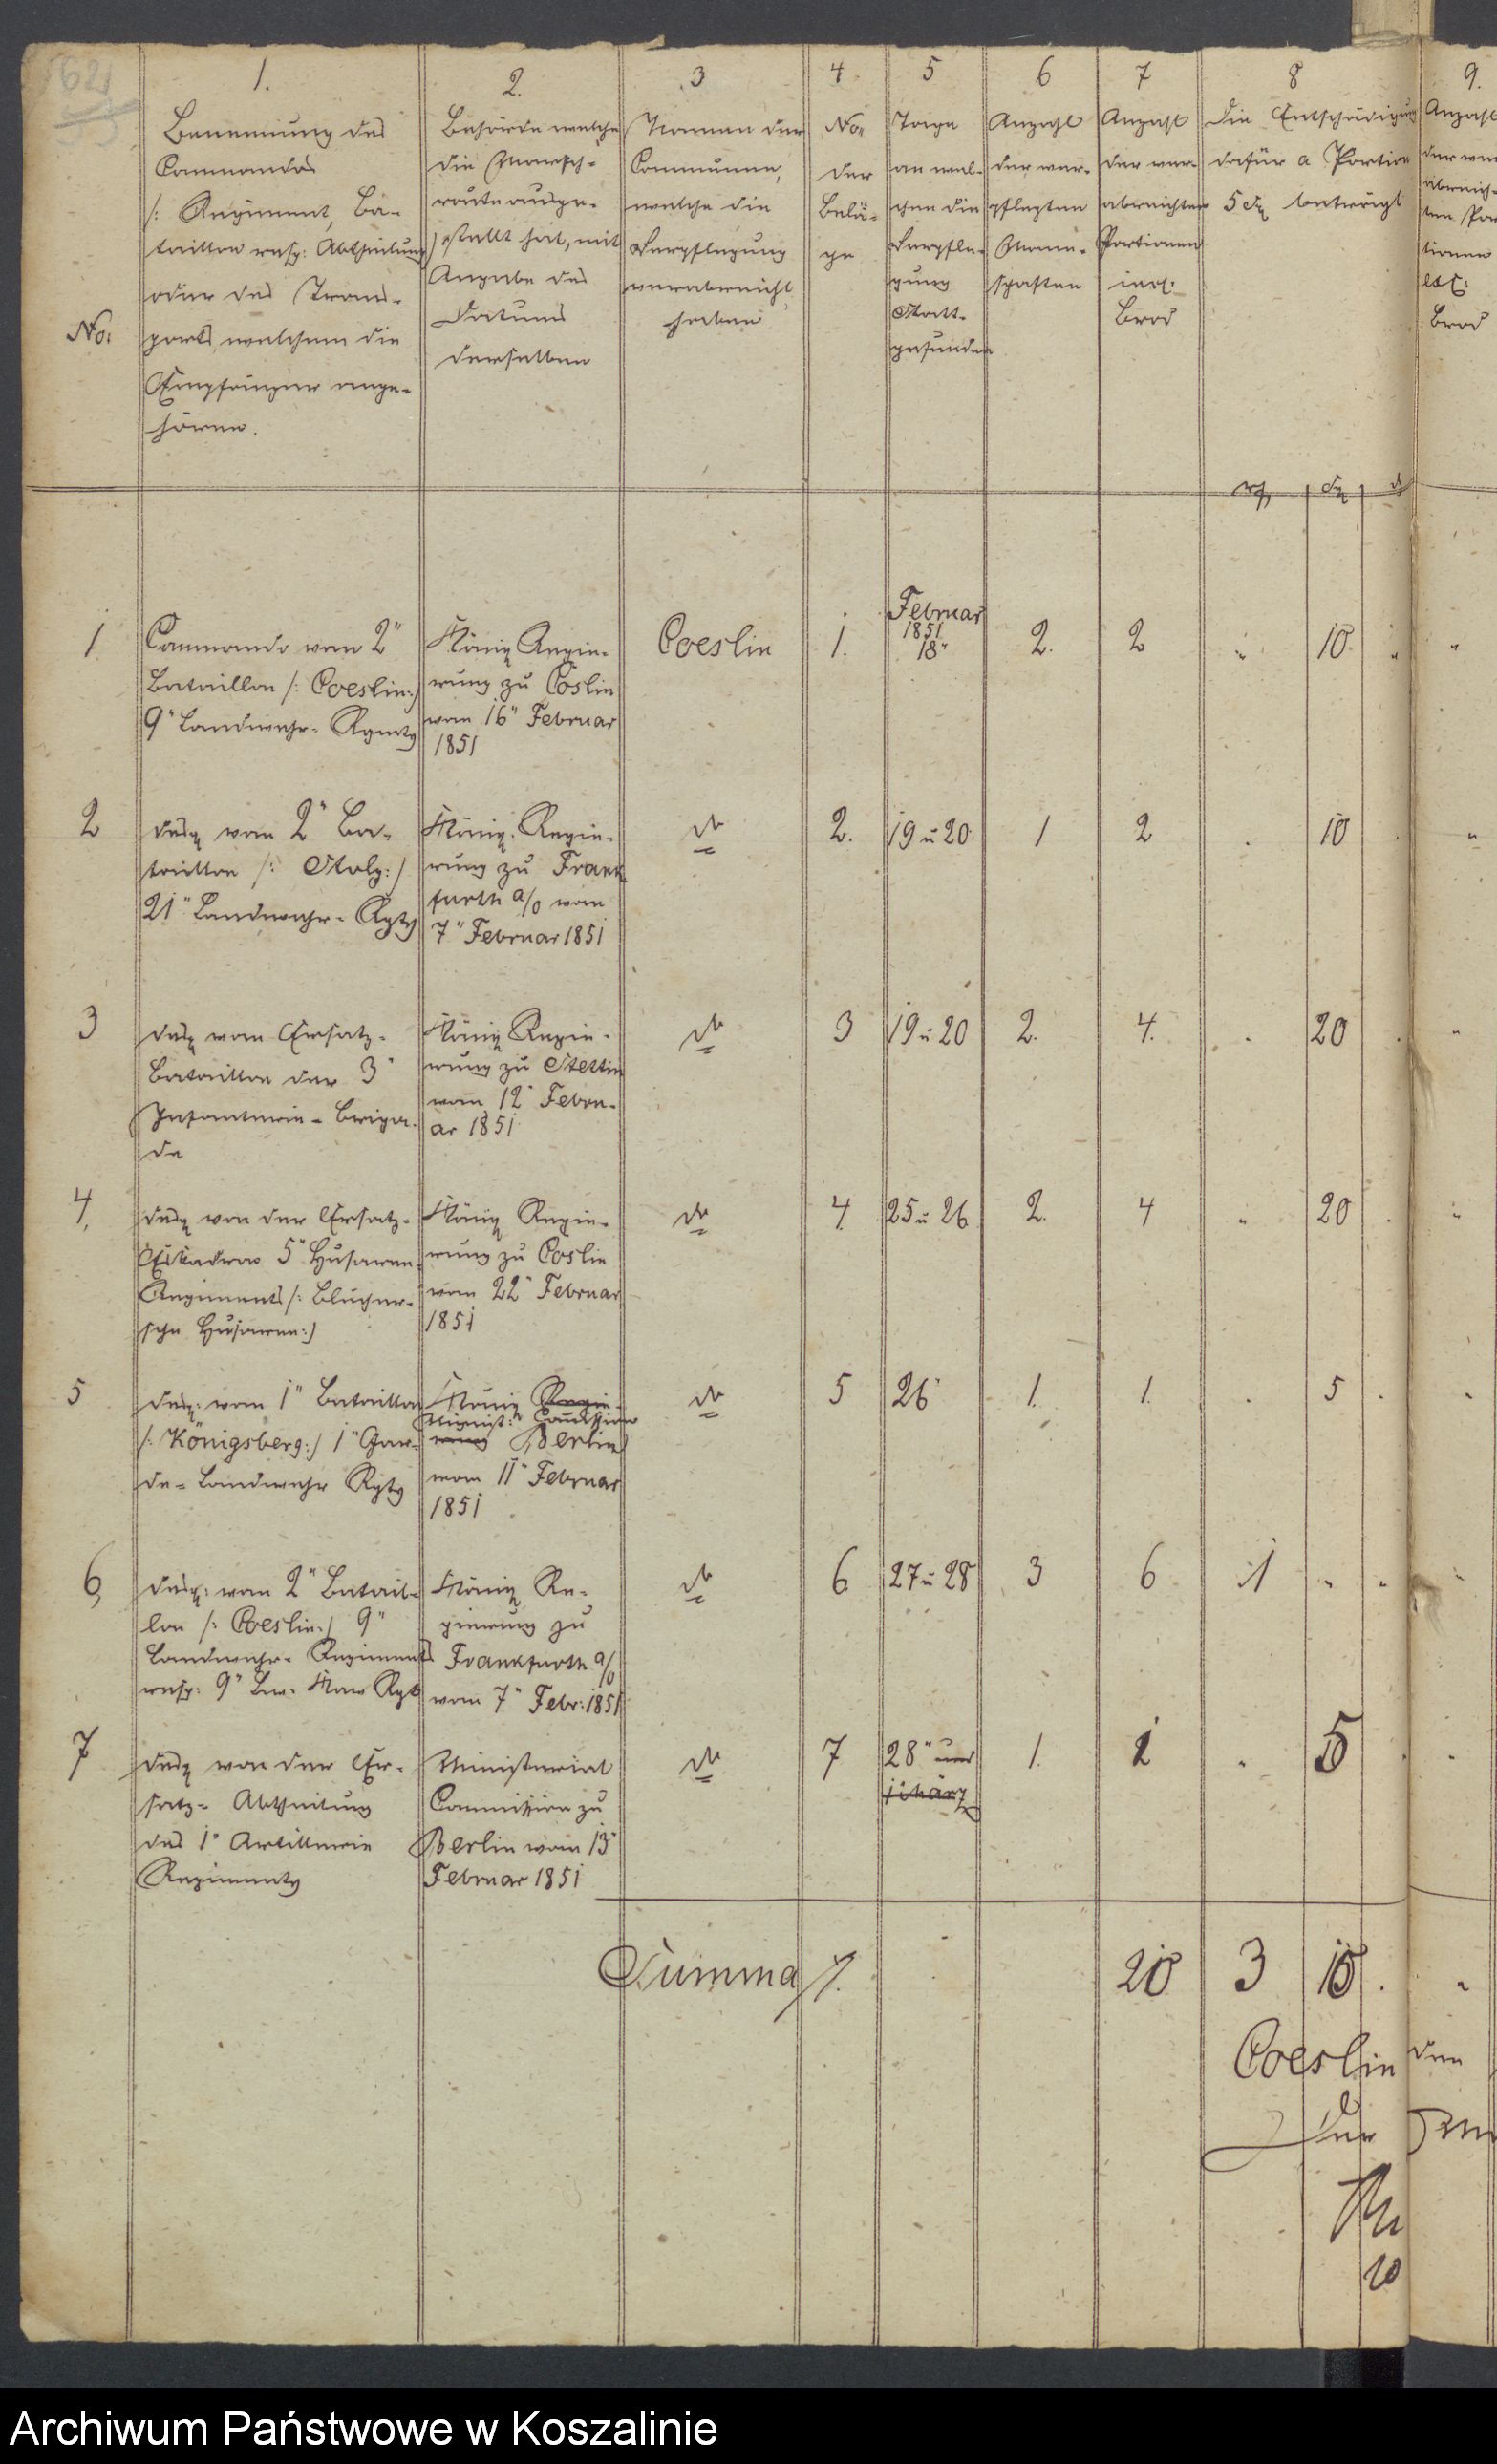 62
1.
Benennung des
Commandos
/: Regiment, Ba-
taillon resp: Abtheilung
oder des Trans-
ports welchem die
Empfänger ange-
hören.
No:
2.
Behörde welche
die Marsch-
route ausge-
stellt hat, mit
Angabe des
Datums
derselben
3
Namen der
Commune,
welche die
Verpflegung
verabreicht
haben
4.
No.
der
Belä-
ge
5
Tage
an wel-
chen die
Verpfle-
gung
Statt-
gefunden
6
Anzahl
der ver-
pflegten
Mann-
schaften
7
Anzahl
der ver-
abreichten
Portionen
incl.
Brod
8
die Entschädigung
dafür a Portion
5 Sg beträgt
9.
Anzahl
der ver
abreich-
ten Por
tionen
excl:
Brod
1
Commando vom 2"
Bataillon /: Coeslin :/
9" Landwehr-Regmts
König Regie-
rung zu Cöslin
vom 16" Februar
1851
Coeslin
1.
Februar
1851
18"
2.
2
10
2
desg vom 2" Ba-
taillon /: Stolp :/
21" Landwehr-Rgts
König. Regie-
rung zu Frank
furth a/o vom
7" Februar 1851
do
2.
19 u 20
1
2
10
3
desg vom Ersatz-
Bataillon der 3"
Infanterie-Briga-
de
König Regie-
rung zu Stettin
vom 12" Febru-
ar 1851
do
3
19 u 20
2.
4.
20
4,
desg von der Ersatz-
Eskadron 5" Husaren
Regiments /: Blücher-
sche Husaren :/
König Regie-
rung zu Coslin
vom 22" Februar
1851
do
4
25 u 26
2.
4
20
5
desg: vom 1" Bataillon
/: Königsberg :/ 1" Gar-
de-Landwehr Rgts
König Regie-
Minist: Commission
rung Berlin
vom 11" Februar
1851
do
5
26
1.
1.
5
6,
desg: vom 2" Batail-
lon /: Coeslin :/ 9"
Landwehr-Regiments
resp: 9" Lw. Rgt
König Re-
gierung zu
Frankfurth a/o
vom 7" Febr: 1851
do
6
27 u 28
3
6
1
7
desg von der Er-
satz-Abtheilung
des 1" Artillerie
Regiments
Ministerial
Commission zu
Berlin vom 13"
Februar 1851
do
7
28" und
1 März
1.
1
5
Summa
7.
20
3
10
Coeslin den
Der